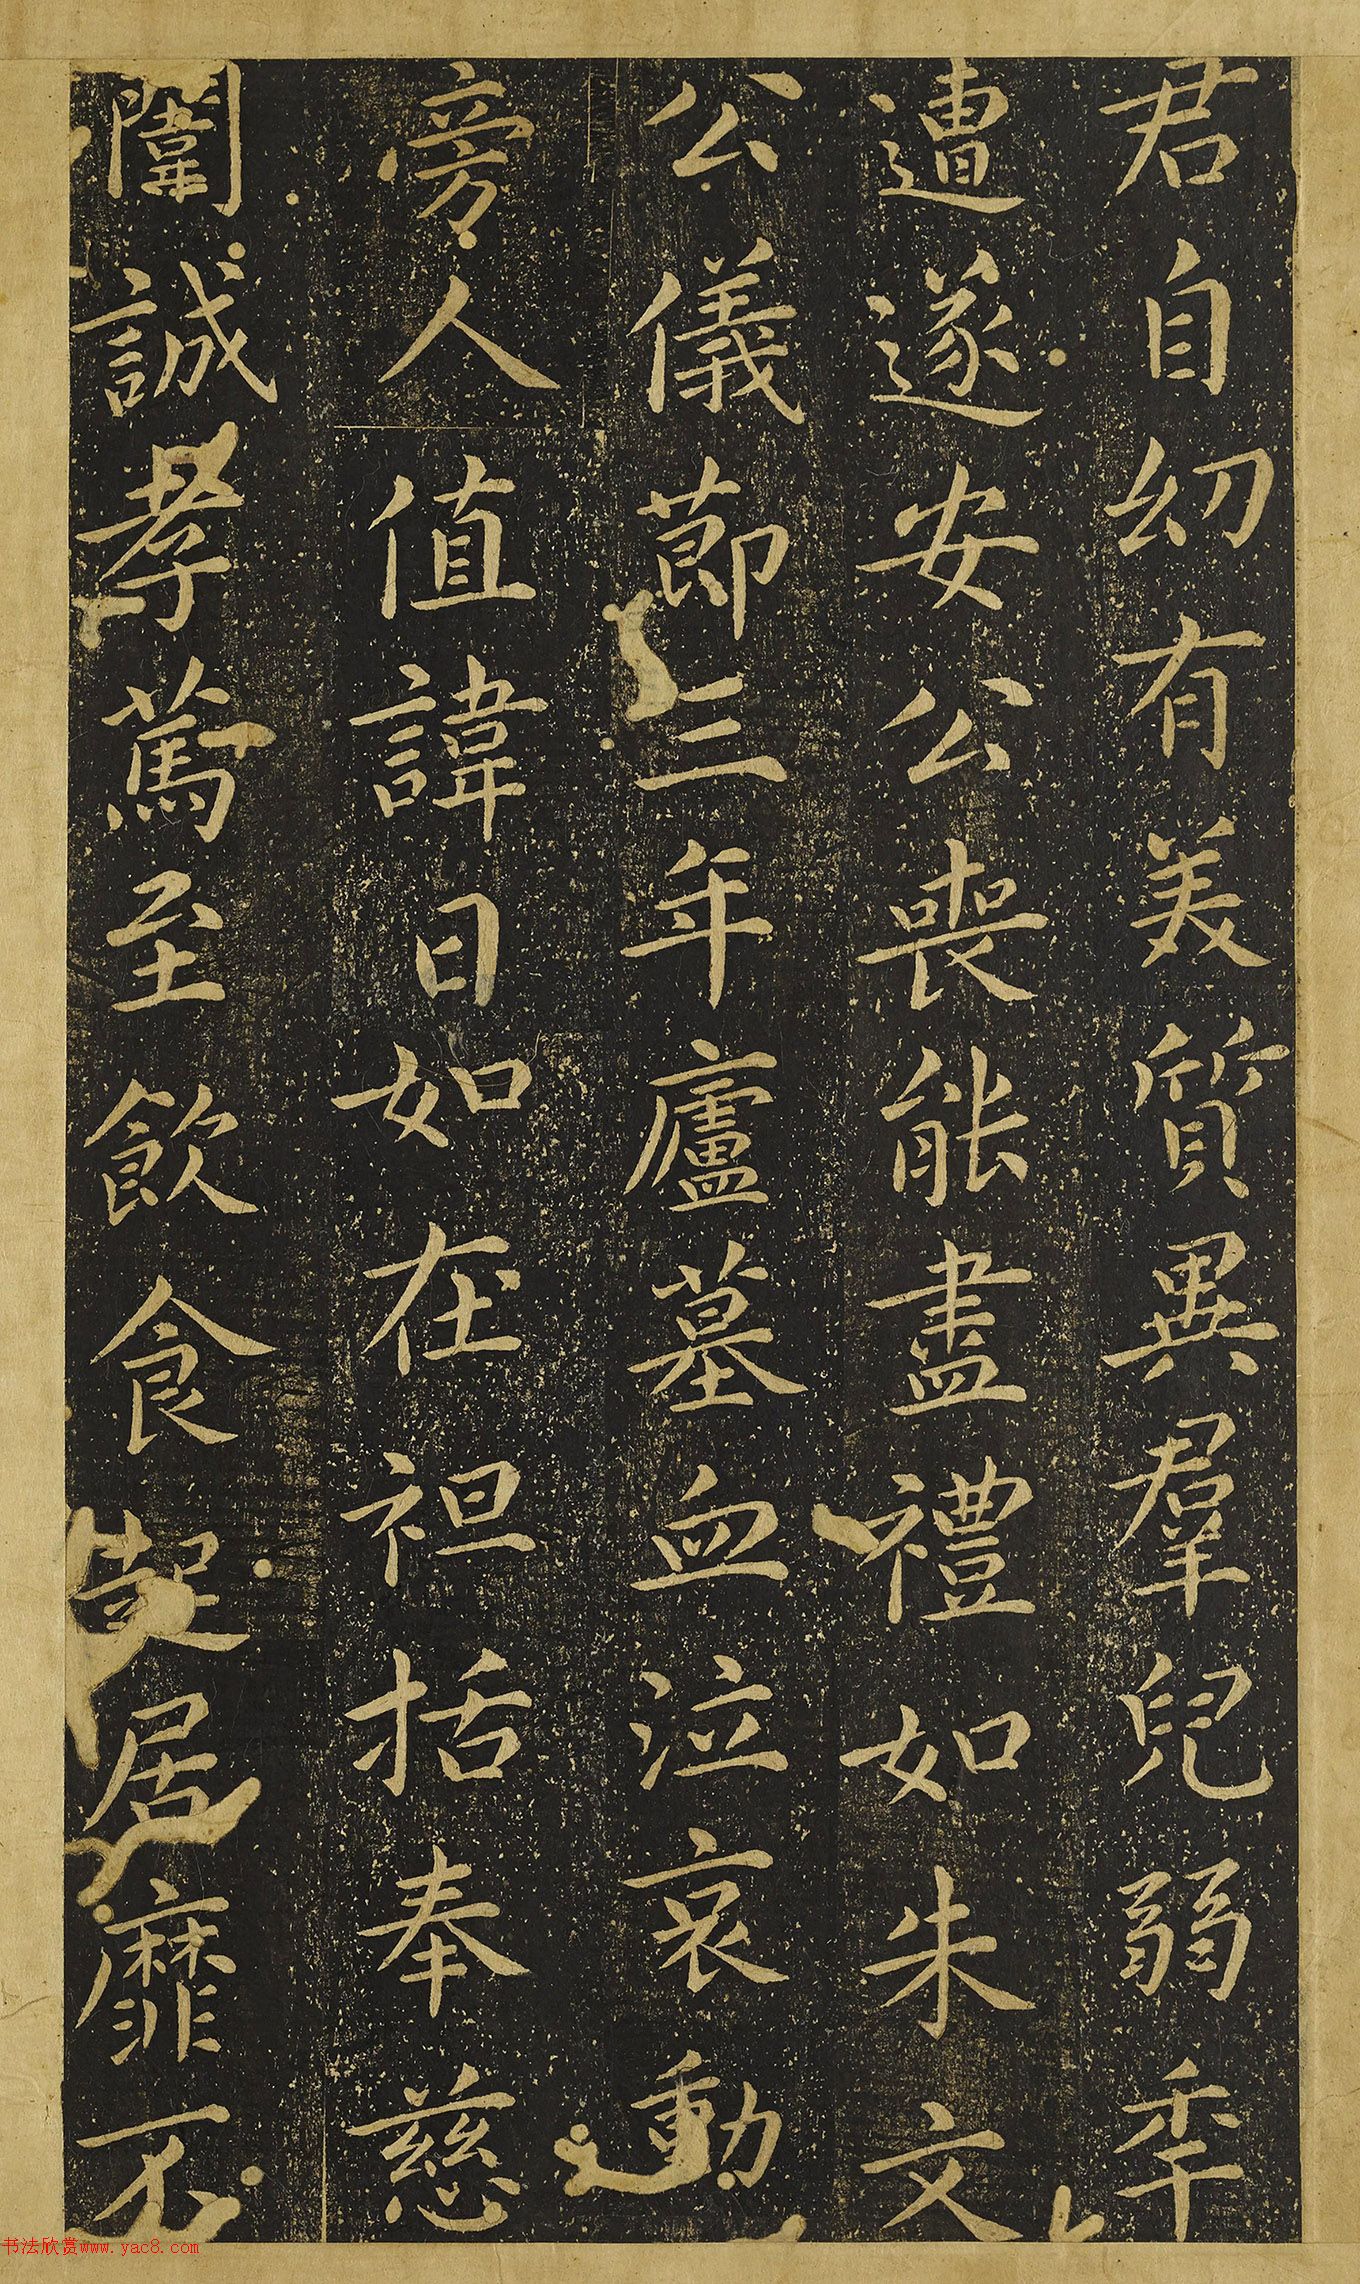 君自幼有美質異羣兒弱季
遭遂安公喪能盡禮如朱文
公儀節三年廬墓血泣哀動
旁人值諱日如在袒括奉慈
闈誠孝篤至飲食起居靡不
书法欣赏www.yac8.com